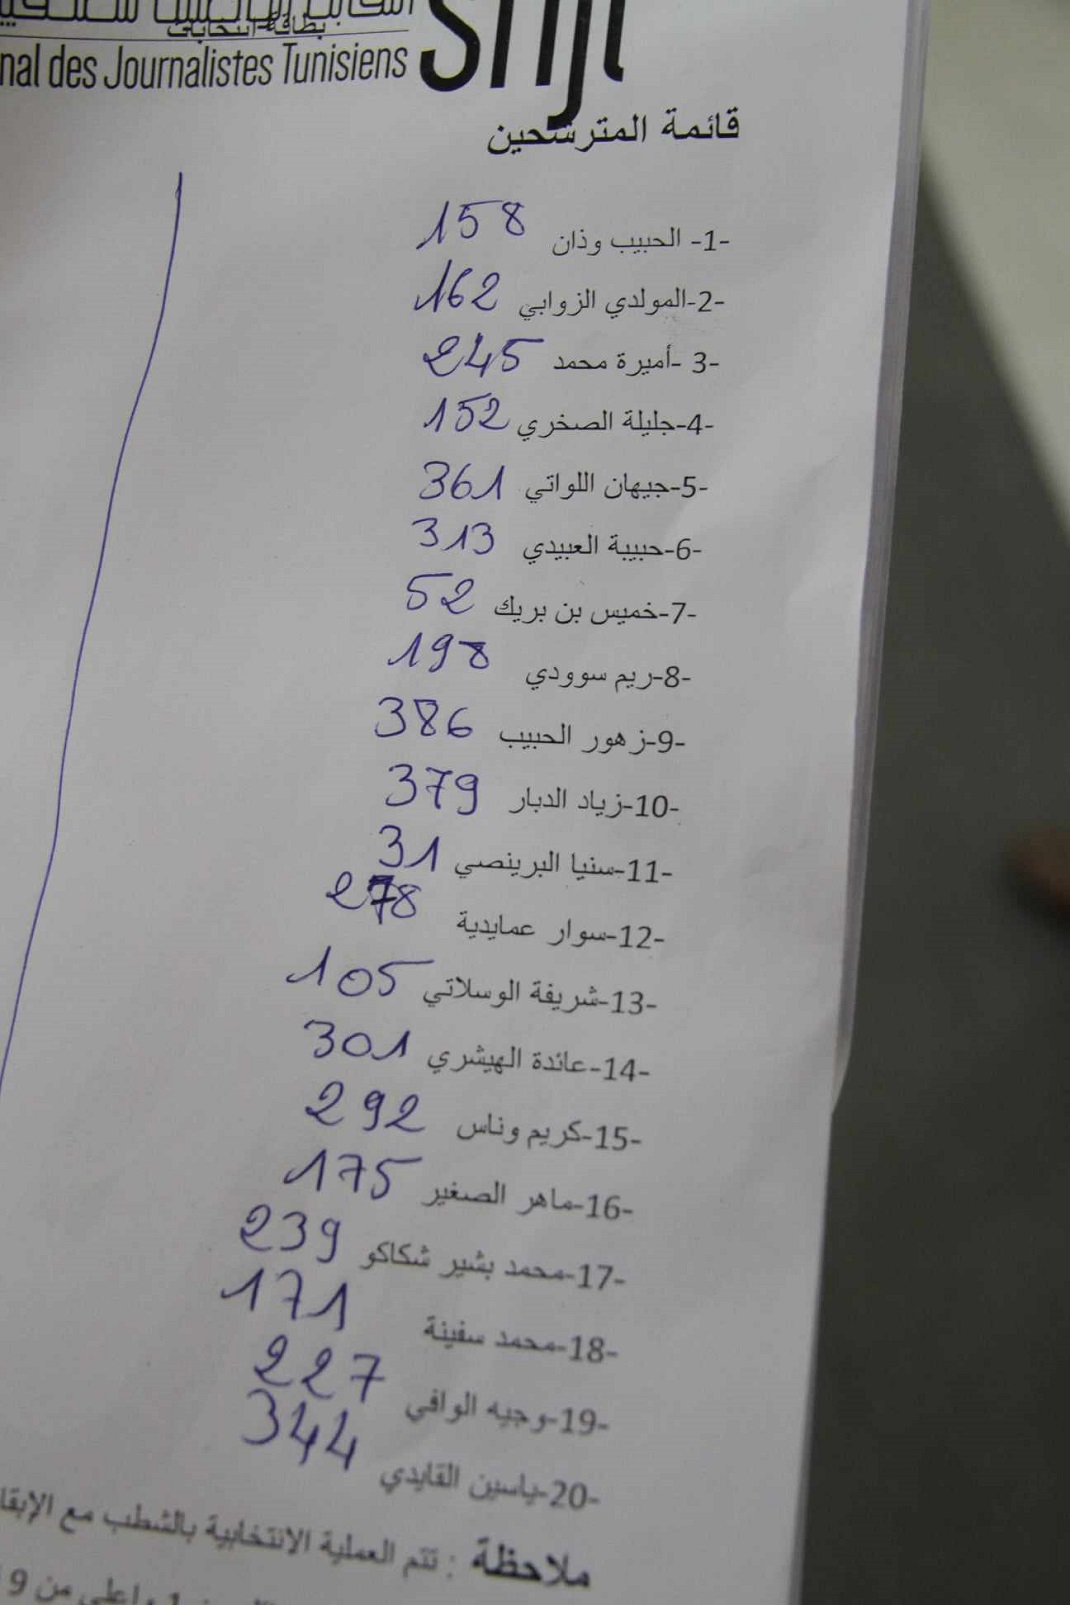 بطاقة انتخابية
nal des Journalistes Tunisiens
snjt
قائمة المترشحين
-1- الحبيب وذان 158
-2-المولدي الزوابي 162
-3 -أميرة محمد 245
-4-جليلة الصخري 152
-5-جيهان اللواتي 361
-6-حبيبة العبيدي 313
-7-خميس بن بريك 52
-8-ريم سوودي 198
-9-زهور الحبيب 386
-10-زياد الدبار 379
-11-سنيا البرينصي 31
-12-سوار عمايدية 278
-13-شريفة الوسلاتي 105
-14-عائدة الهيشري 301
-15-كريم وناس 292
-16-ماهر الصغير 175
-17-محمد بشير شكاكو 239
-18-محمد سفينة 171
-19-وجيه الوافي 227
-20-ياسين القايدي 344
ملاحظة : تتم العملية الانتخابية بالشطب مع الإبقا
1 واعلى من 9